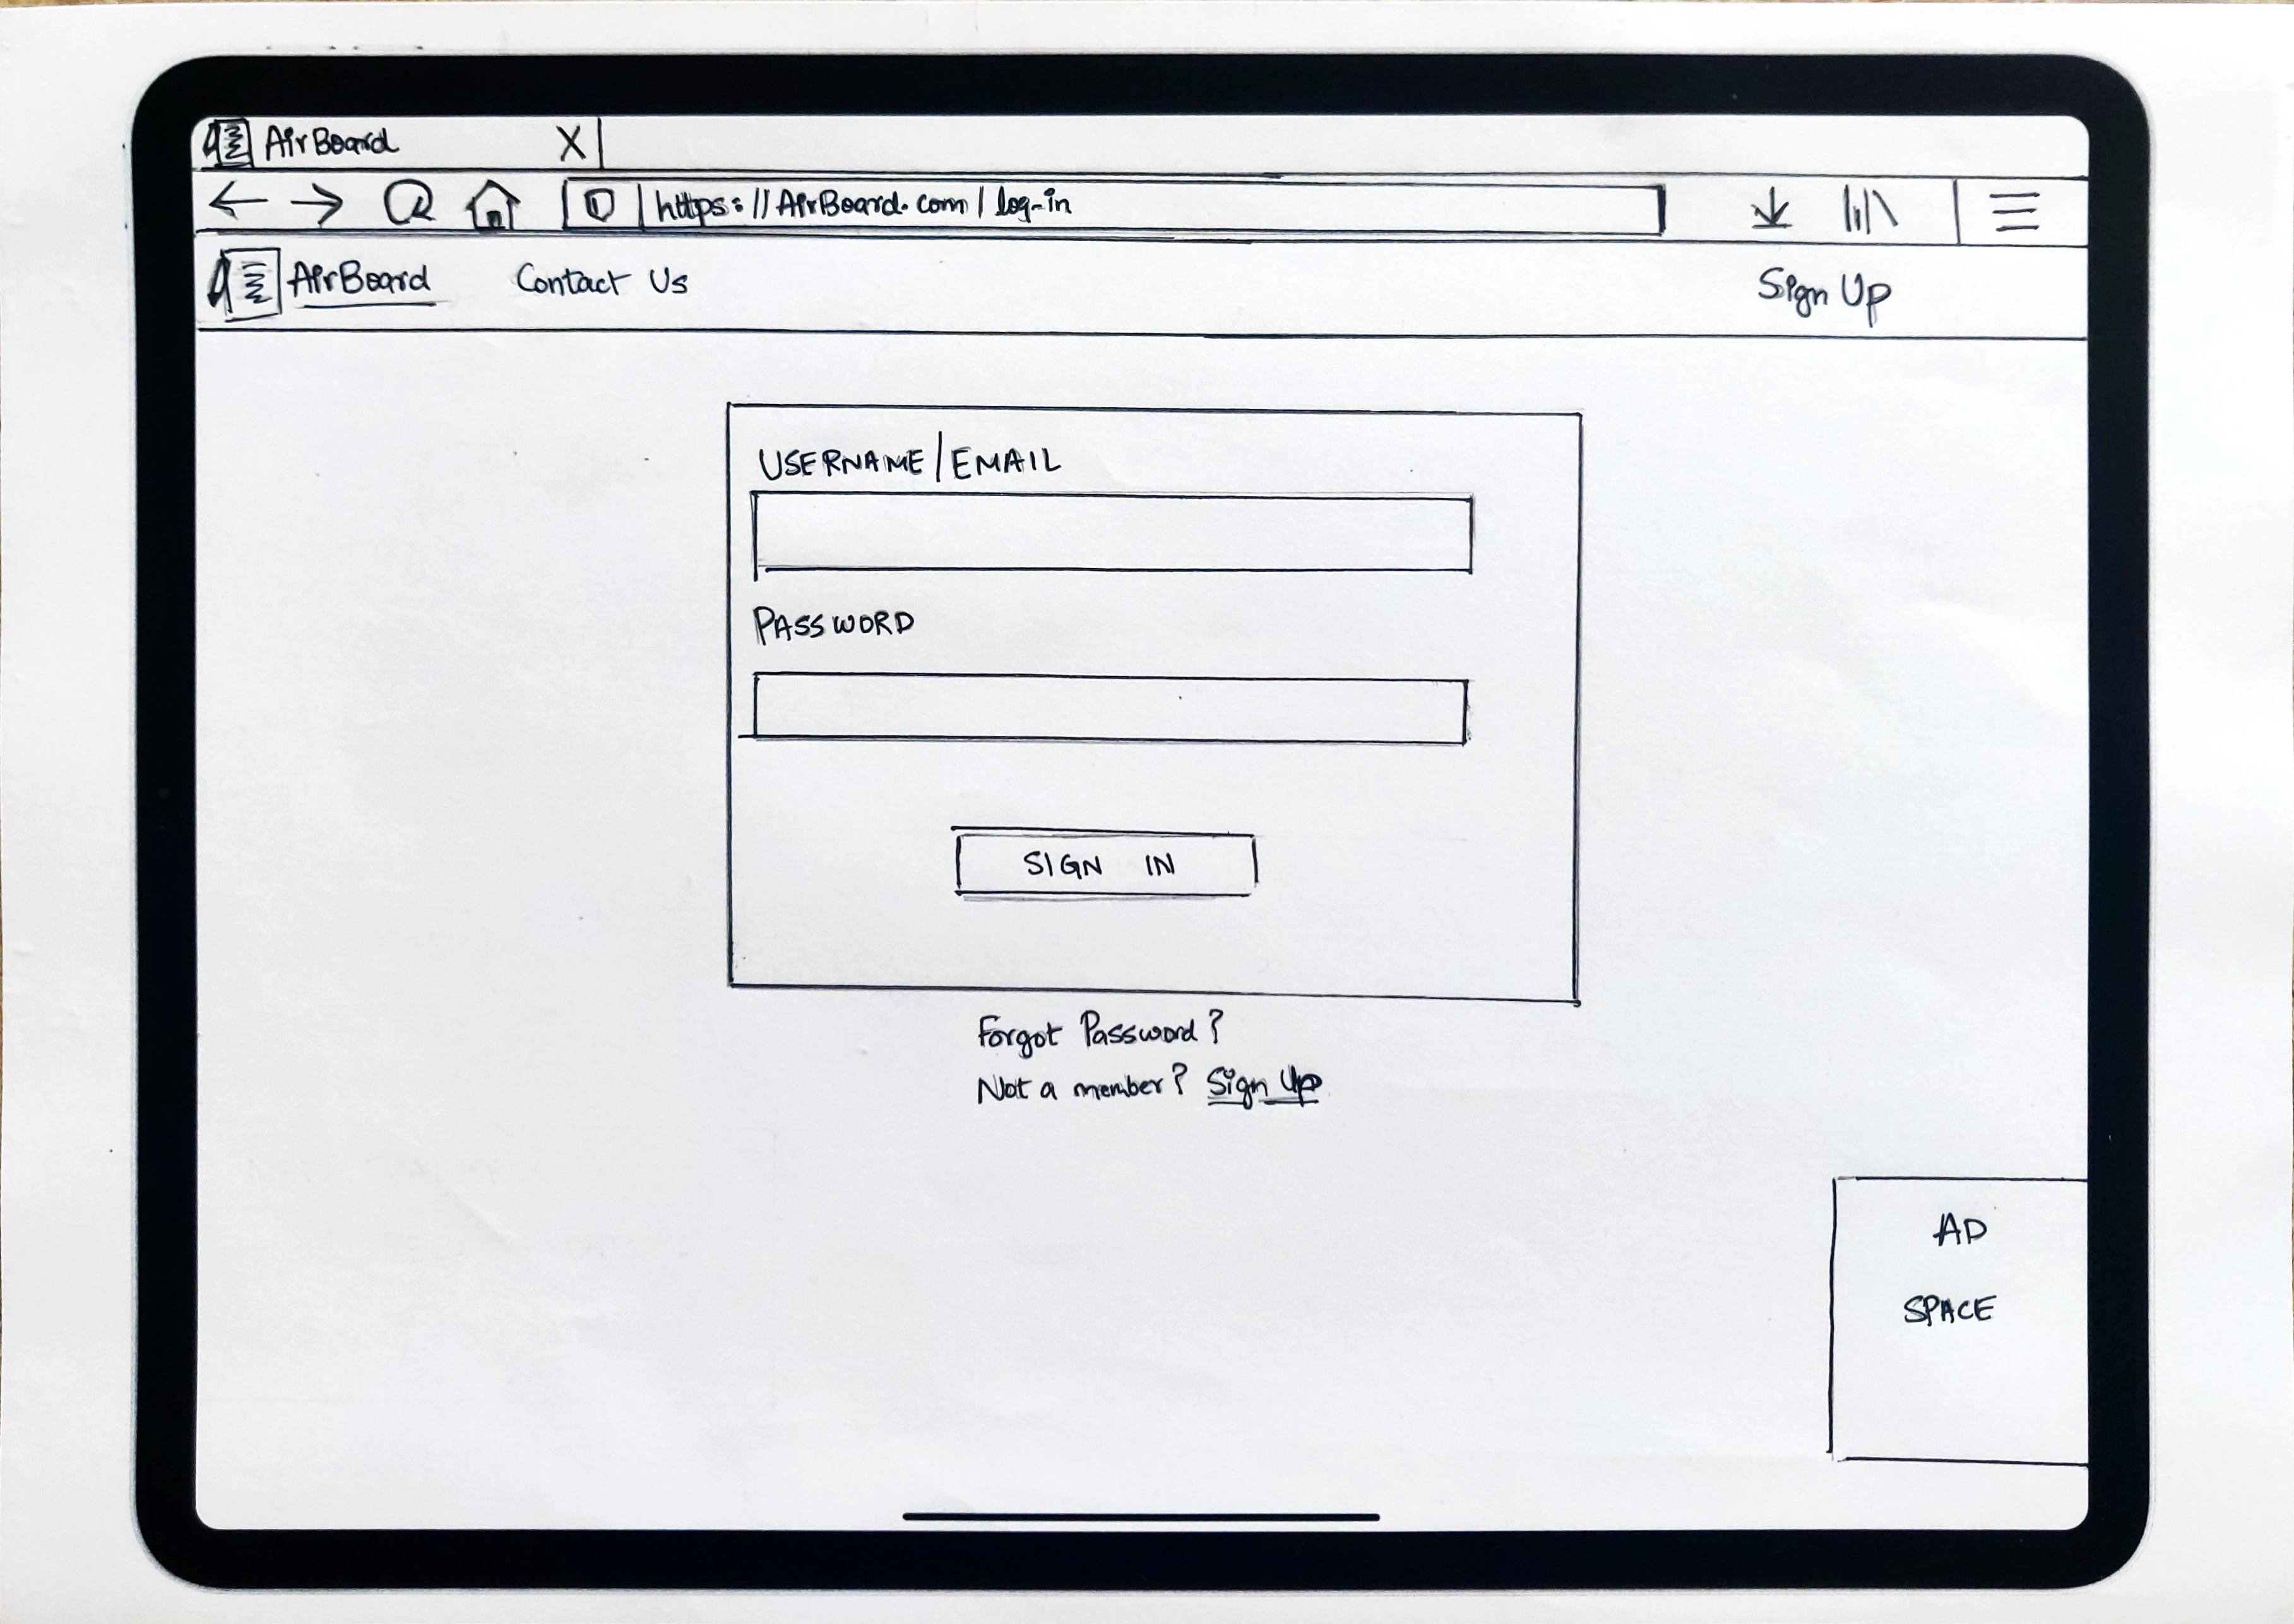 AirBoard X
https://AirBoard.com/log-in
AirBoard Contact Us Sign Up
USERNAME/EMAIL
PASSWORD
SIGN IN
Forgot Password?
Not a member? Sign Up
AD
SPACE